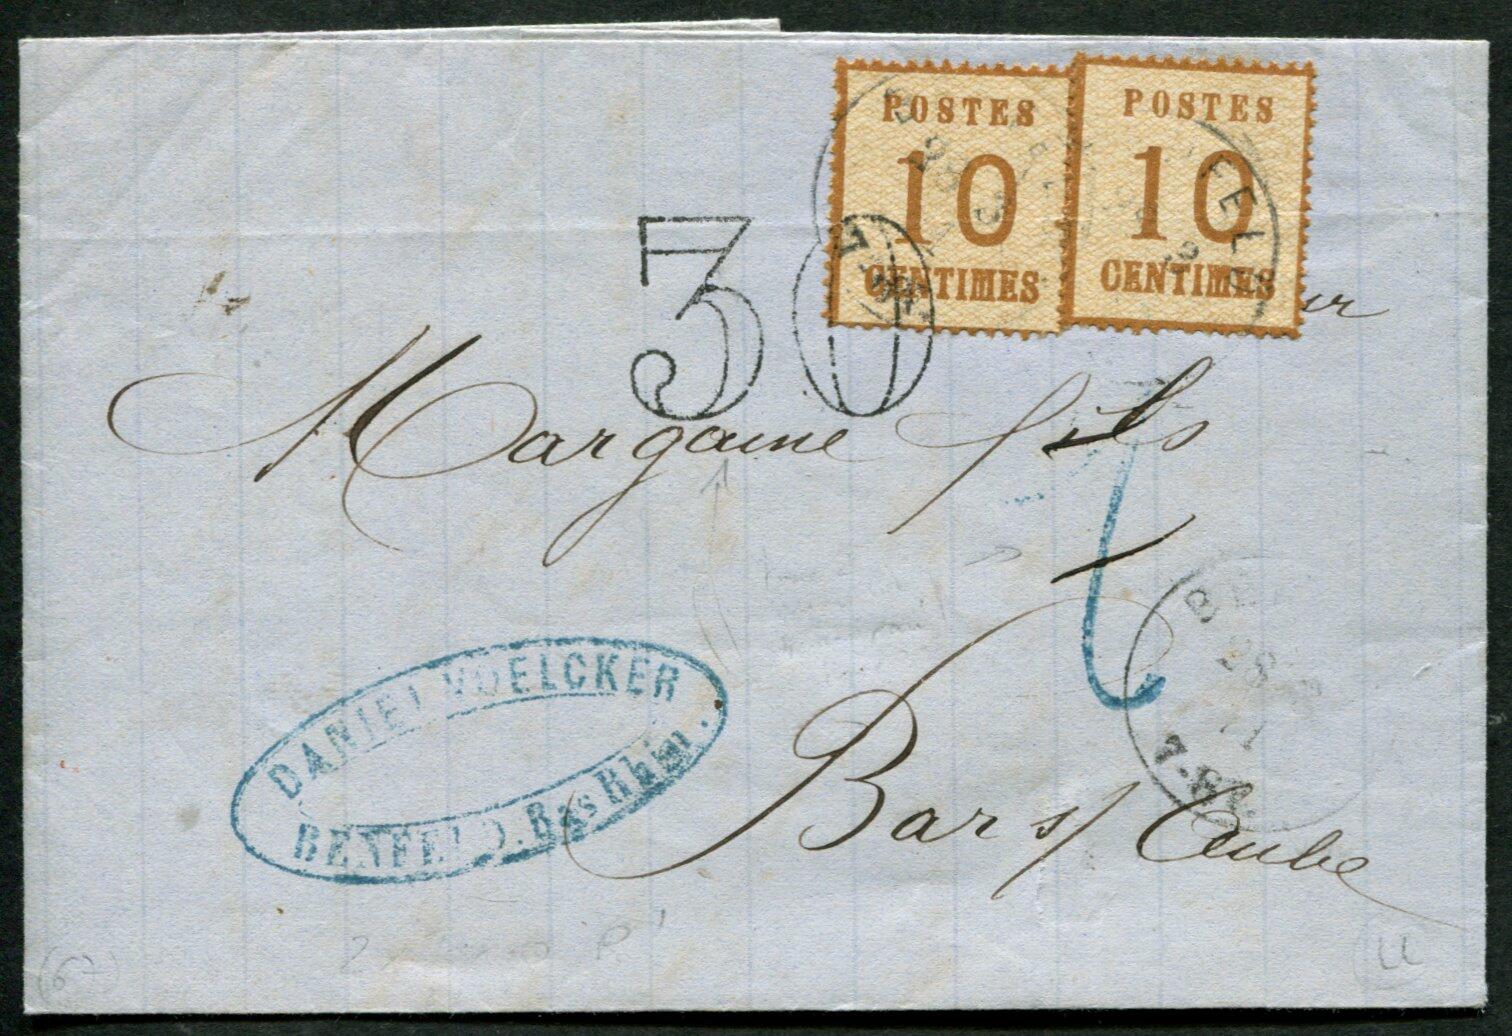 POSTES
10
CENTIMES
POSTES
10
CENTIMES
30
Margaine fils
DANIEL VOELCKER
BENFELD. Bas Rhin.
28
71
Bar s/ Aube
(67)